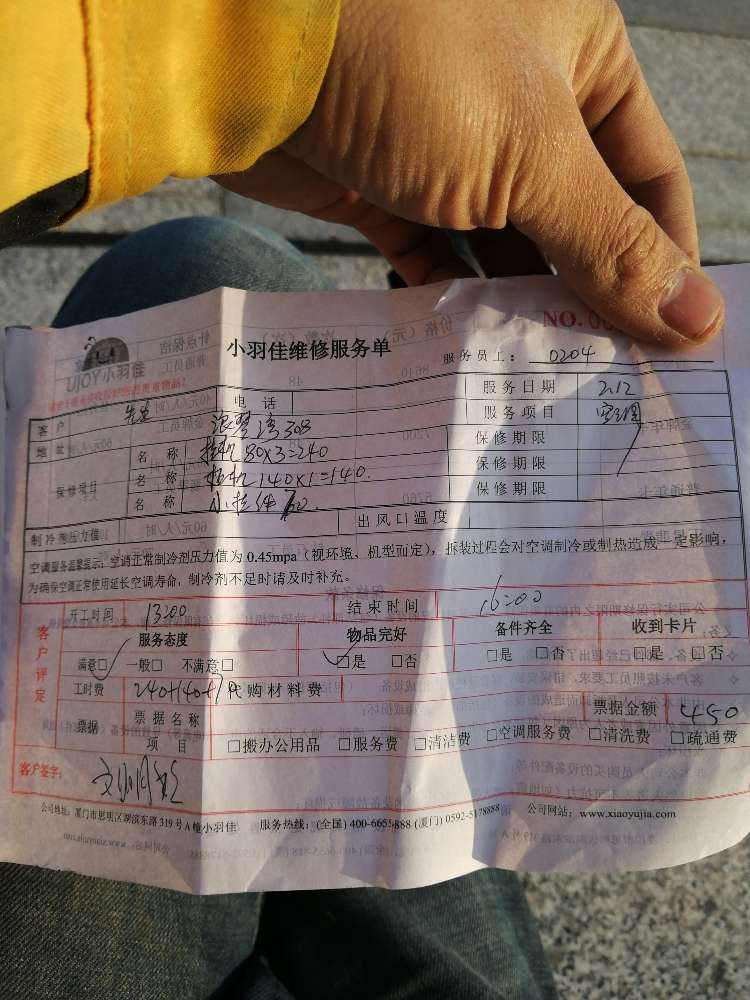 NO. 00
小羽佳维修服务单
服务员工： 0204
小羽佳 YOJU
客户 先生 电话 服务日期 2.12
地址 308 服务项目 空调
保修项目 名称 挂机 80×3=240 保修期限
名称 140×1=140 保修期限
名称 保修期限
制冷剂压力值 出风口温度
空调服务温馨提示：空调正常制冷剂压力值为 0.45mpa（视环境、机型而定），拆装过程会对空调制冷或制热造成一定影响，
为确保空调正常使用延长空调寿命，制冷剂不足时请及时补充。
客户评定
开工时间 13:00 结束时间 16:00
服务态度 物品完好 备件齐全 收到卡片
满意□ 一般□ 不满意□ □是 □否 □是 □否 □是 □否
工时费 240+140+70 代购材料费
票据 票据名称 票据金额 450
项目 □搬办公用品 □服务费 □清洁费 □空调服务费 □清洗费 □疏通费
客户签字：
公司地址：厦门市思明区湖滨东路 319 号 A 幢小羽佳 服务热线：(全国) 400-6655-888 (厦门) 0592-5178888 公司网站：www.xiaoyujia.com